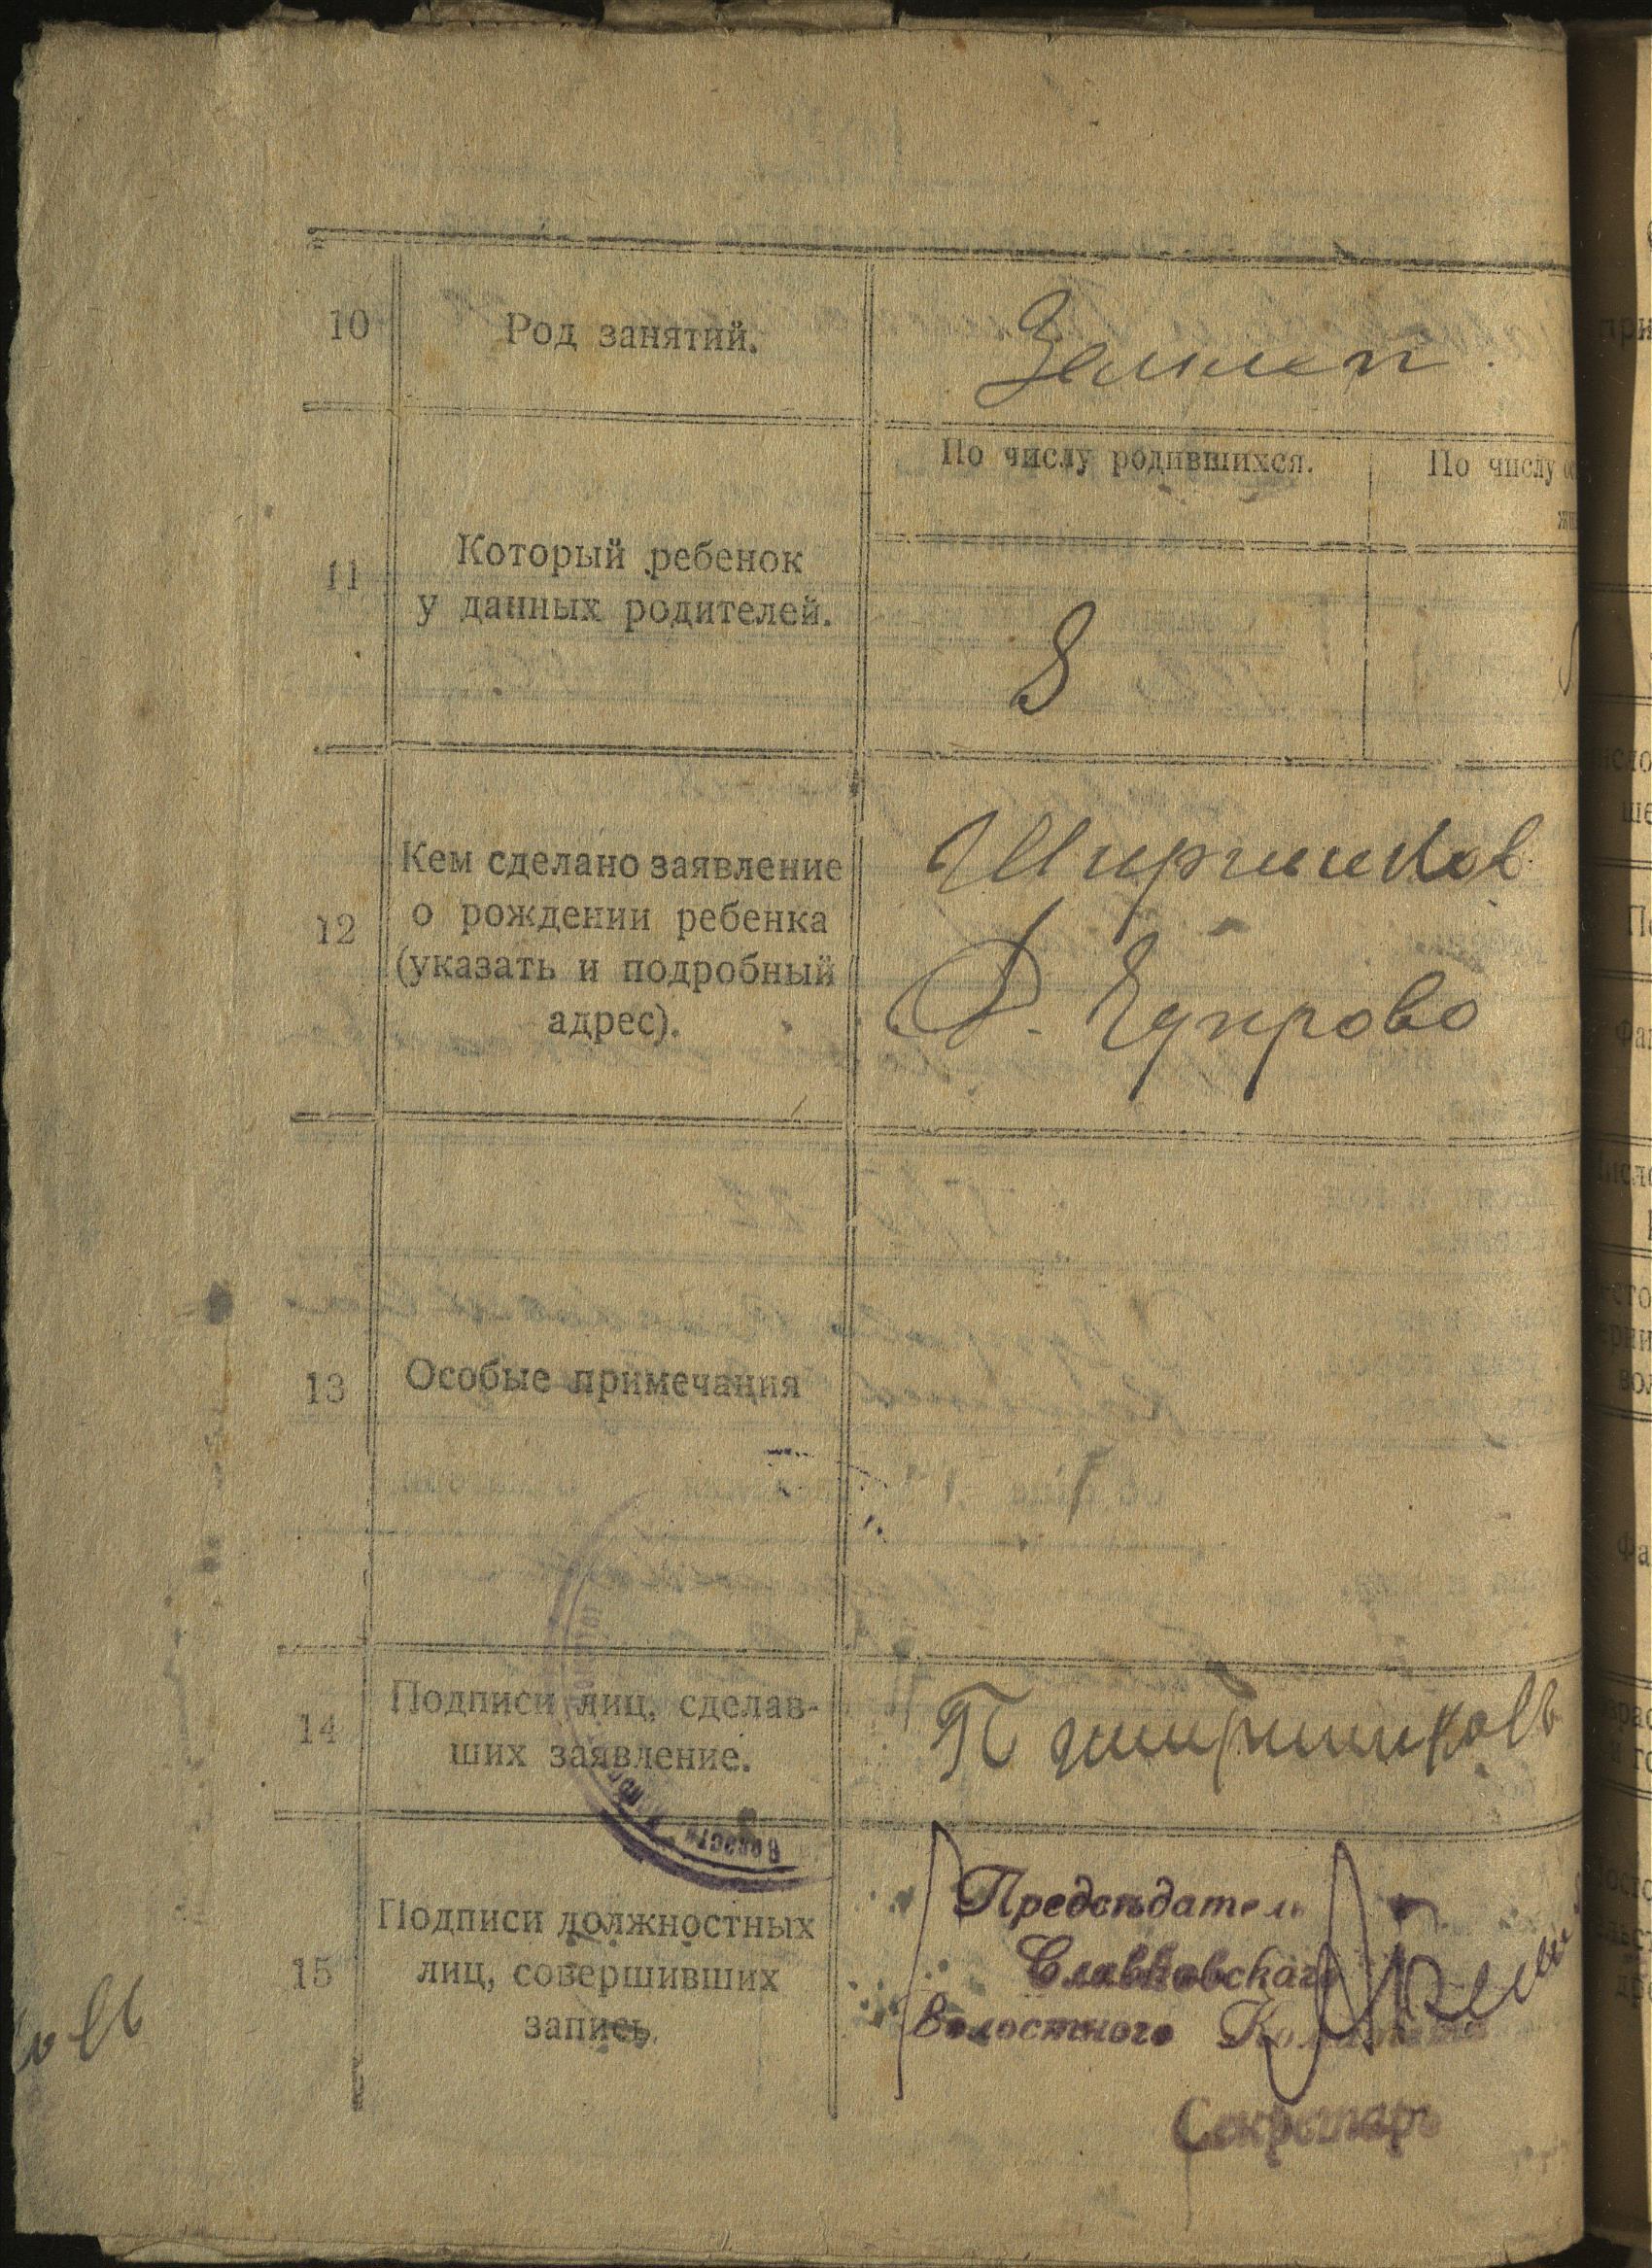 10 Род занятий. Землеп.
По числу родившихся. По числу
11 Который ребенок
у данных родителей.
8
12 Кем сделано заявление
о рождении ребенка
(указать и подробный
адрес).
Ширшиков
Д. Едрово
13 Особые примечания
14 Подписи лиц, сделав-
ших заявление.
П Ширшиковъ
15 Подписи должностных
лиц, совершивших
запись.
Председатель
Славковскаго
Волостного
Секретарь